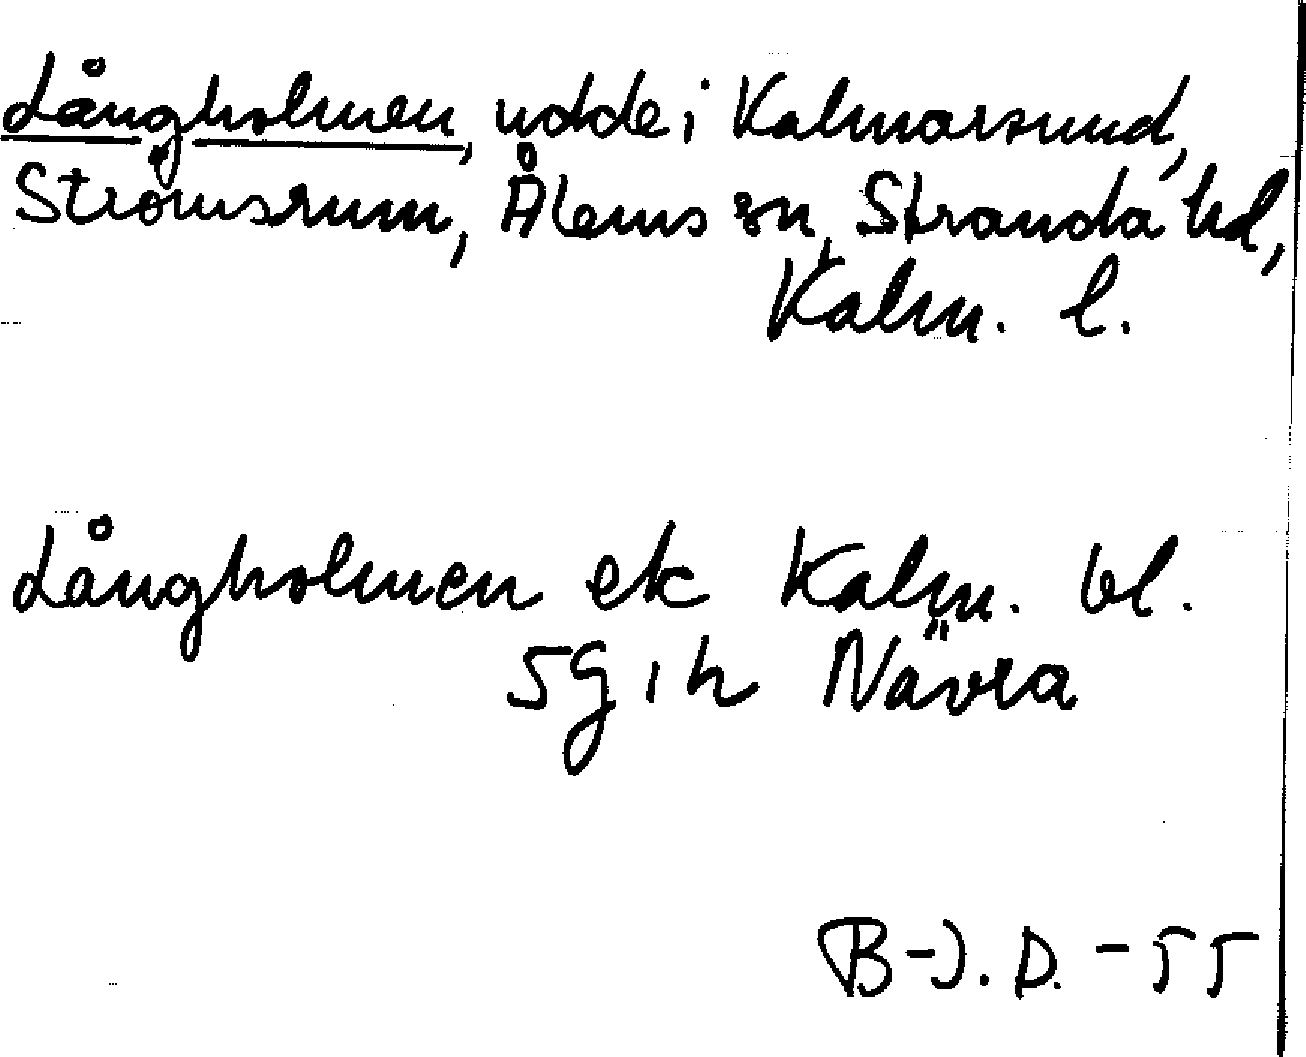 Långholmen, udde i Kalmarsund,
Strömsrum, Ålems sn, Stranda hd,
Kalm. l.
Långholmen ek Kalm. bl.
5g1h Nävra
B-J.D. -55